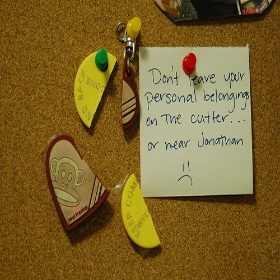 Don't leave your
personal belongings
on The cutter...
or near Jonathan